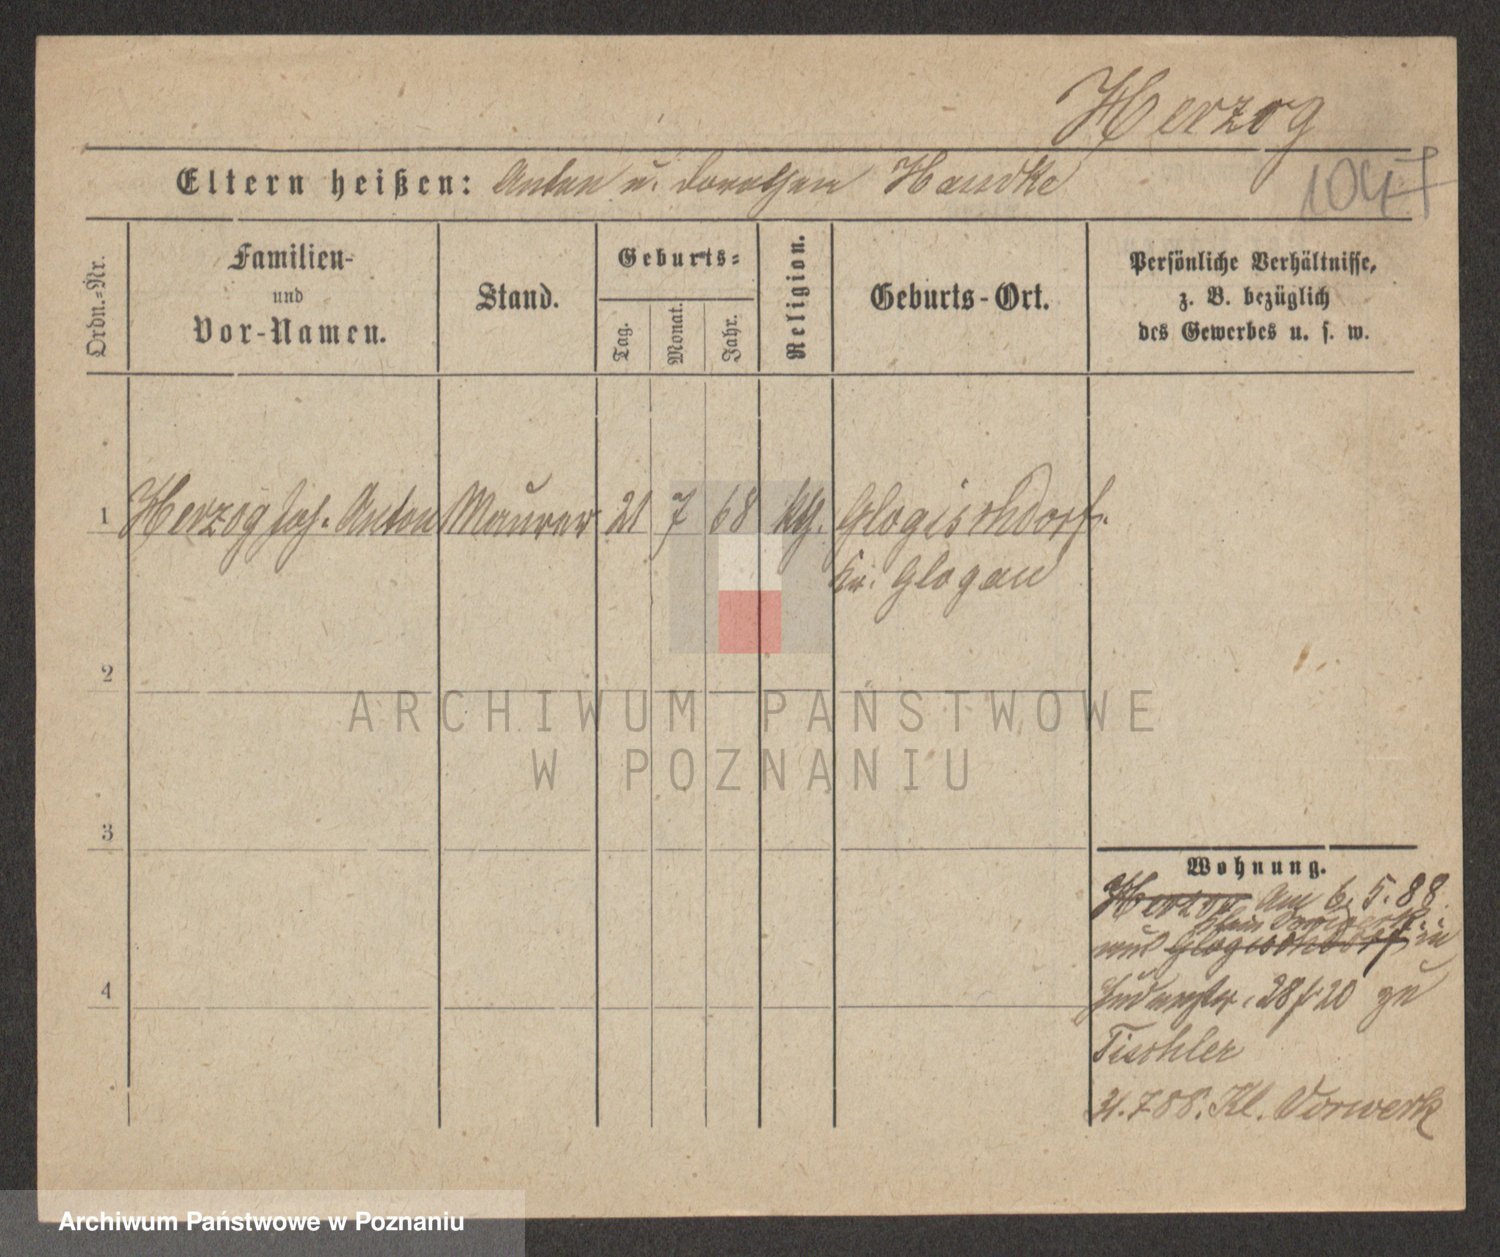 Herzog
104
Eltern heißen: Anton u. Dorothea Handke
Ordn.-Nr.
Familien-
und
Vor-Namen.
Stand.
Geburts-
Tag.
Monat.
Jahr.
Religion.
Geburts-Ort.
Persönliche Verhältnisse,
z. B. bezüglich
des Gewerbes u. s. w.
1 Herzog Joh. Anton Maurer 21 7 68 kth. Glogischdorf
Kr. Glogau
2
3
4
Wohnung.
Herzog Am 6. 5. 88
Klein Vorwerk
aus Glogischdorf in
28 20 zu
Tischler
31.7 88. Kl. Vorwerk
ARCHIWUM PAŃSTWOWE
W POZNANIU
Archiwum Państwowe w Poznaniu